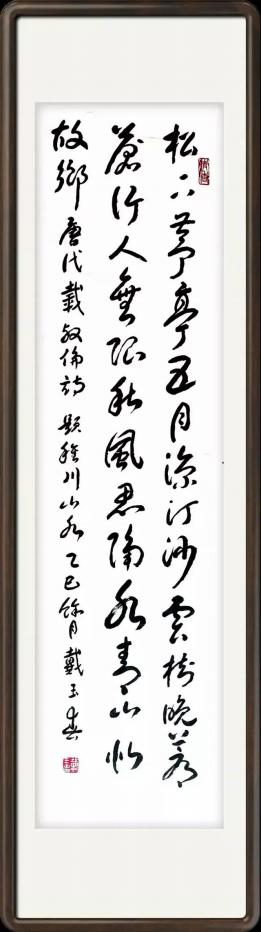 松下茅亭五月凉汀沙云树晚苍
苍行人无限秋风思隔水青山似
故乡 唐代戴叔伦诗 题稚川山水 乙巳馀月戴玉春